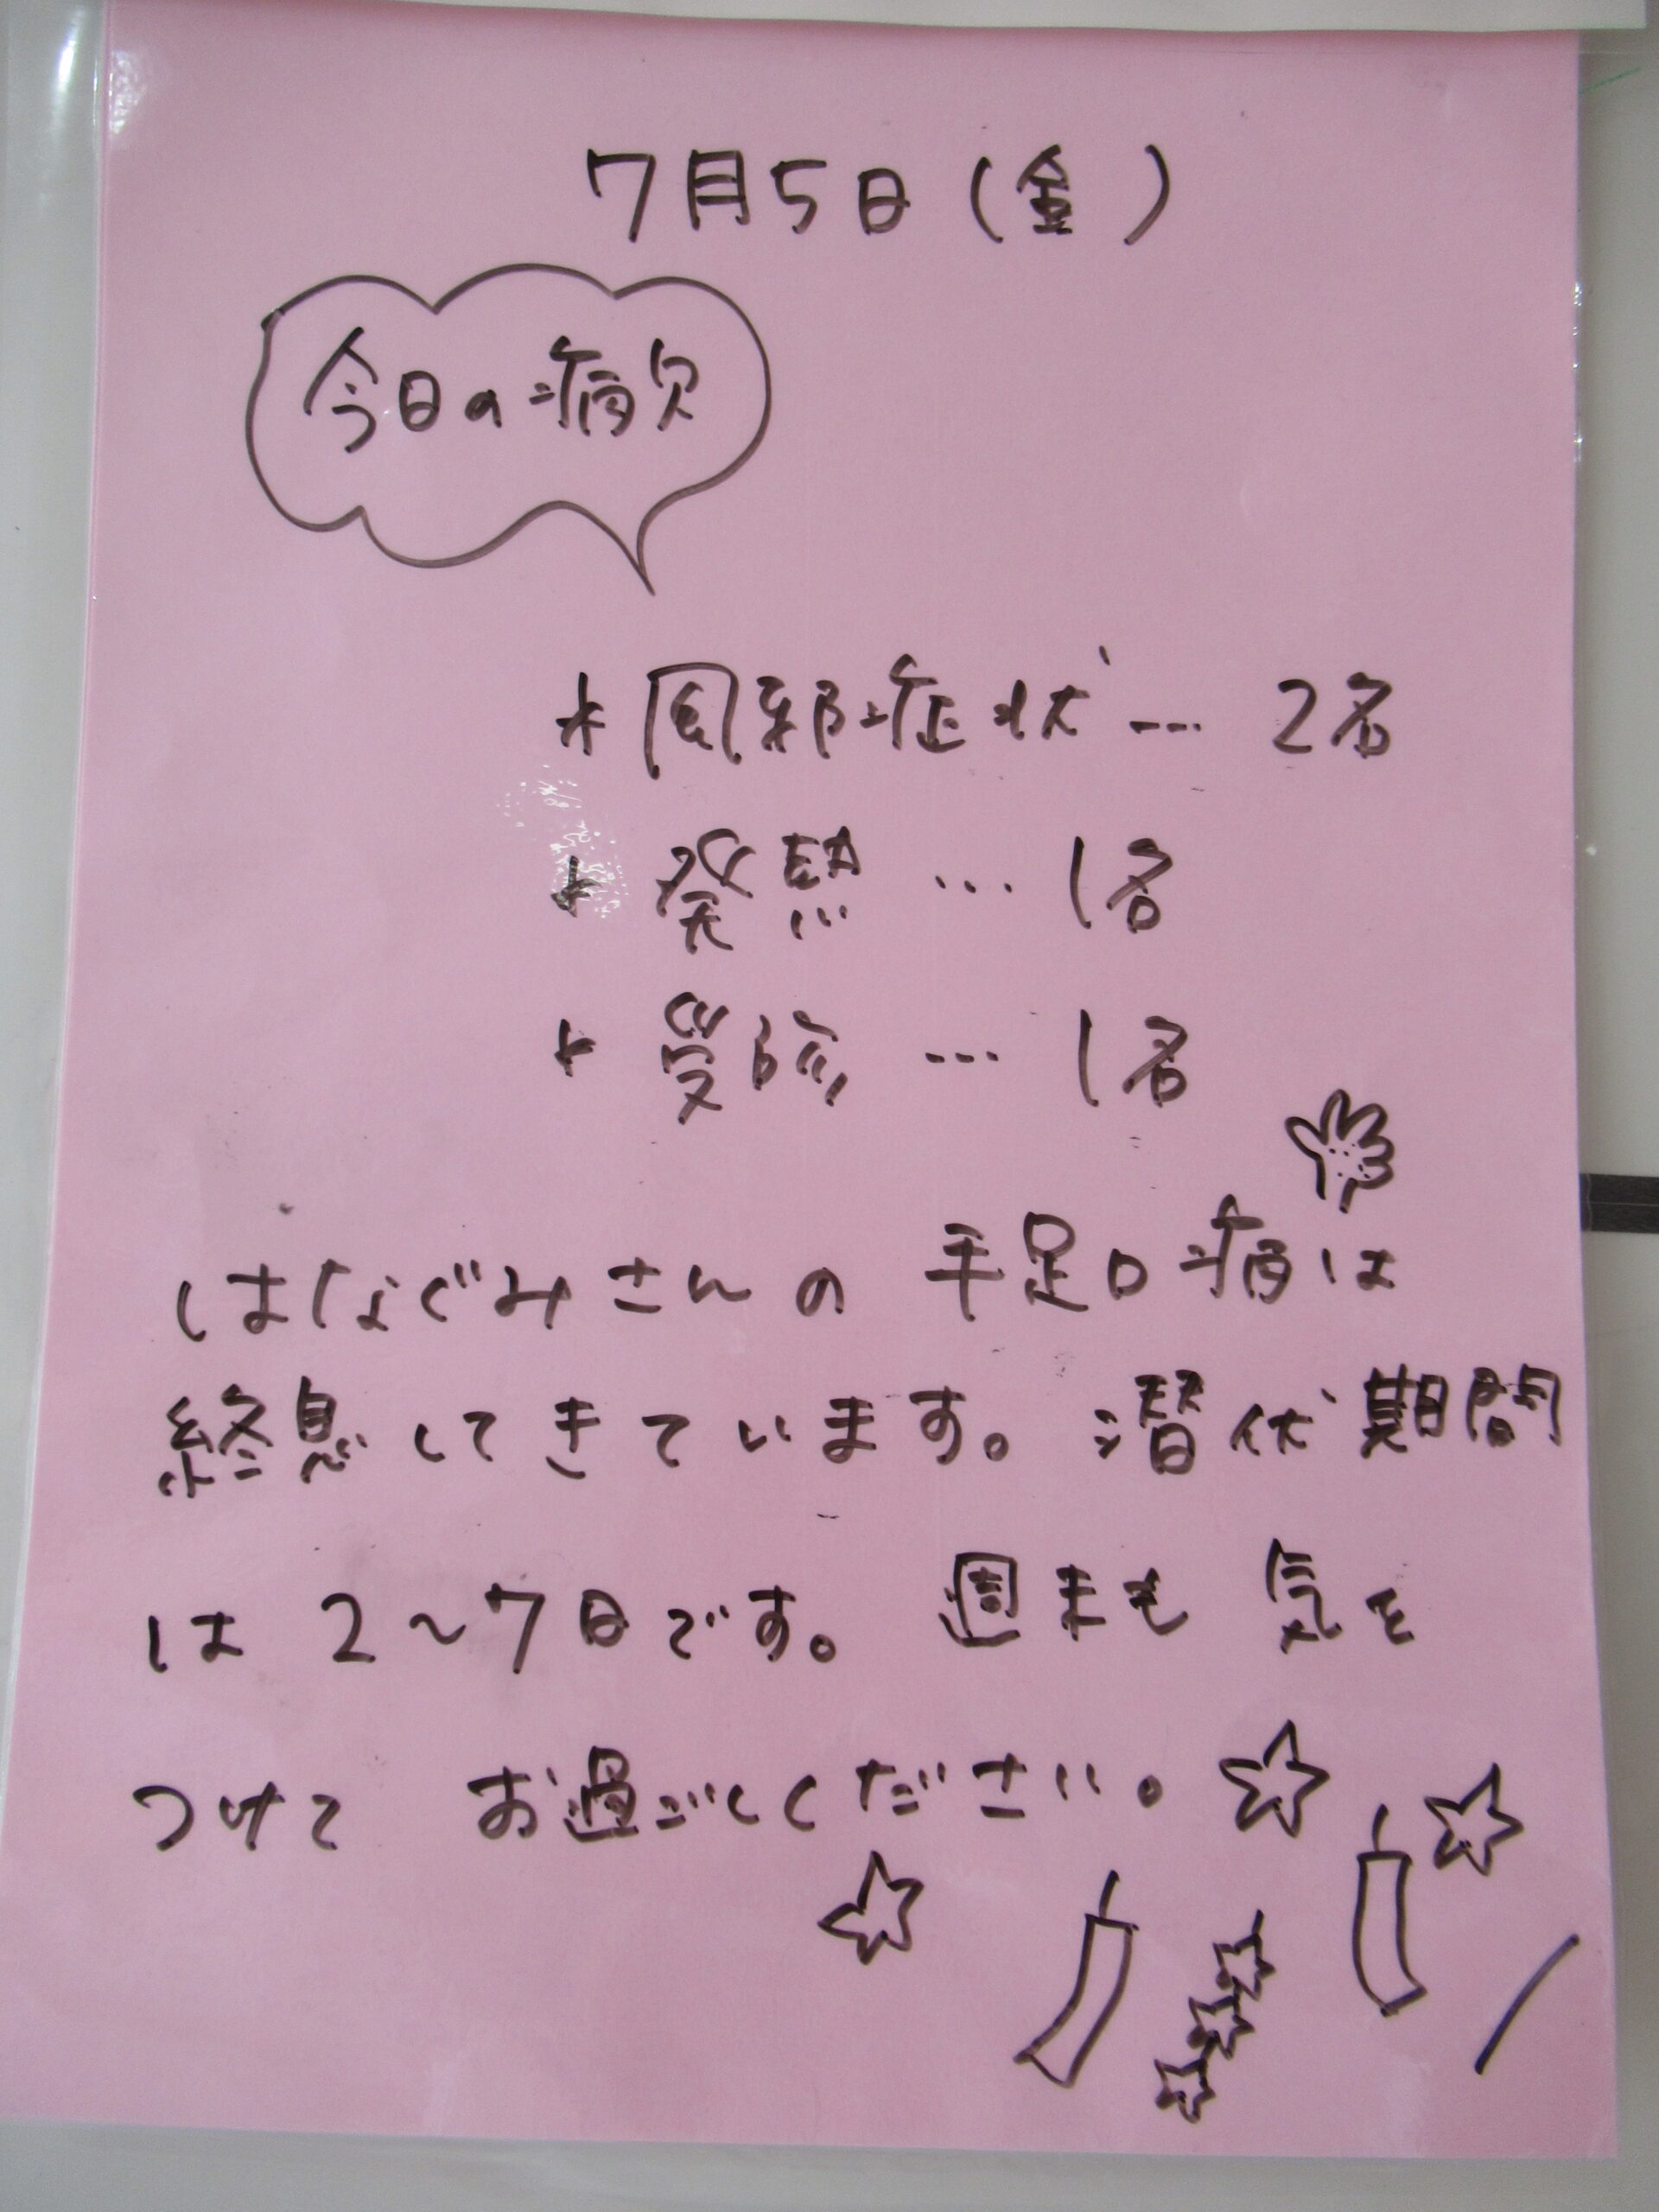 7月5日(金)
今日の病欠
* 風邪症状… 2名
* 発熱 … 1名
* 受診 … 1名
はなぐみさんの 手足口病は
終息してきています。潜伏期間
は 2〜7日です。週末も 気を
つけて お過ごしください。